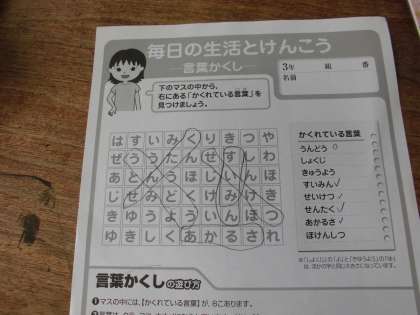 毎日の生活とけんこう
言葉かくし
3年 組 番
名前
下のマスの中から、
右にある「かくれている言葉」を
見つけましょう。
はすいみくりきつや
ぜううたんせすしわ
あとんうほしいんほ
じせみどくけみけき
きゆうようういんほつ
ゆきしくあかるされ
かくれている言葉
うんどう
しょくじ
きゅうよう
すいみん
せいけつ
せんたく
あかるさ
ほけんしつ
言葉かくしの遊び方
❶マスの中には、【かくれている言葉】が、8こあります。